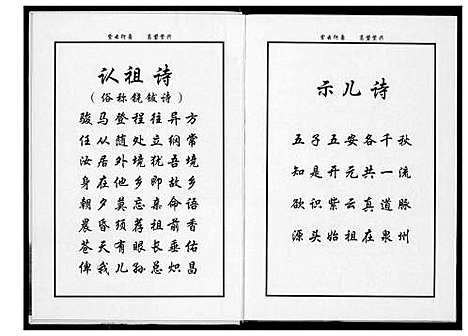 紫云衍马 万世紫兴
认祖诗
(俗称铙钹诗)
骏马登程往异方
任从随处立纲常
汝居外境犹吾境
身在他乡即故乡
朝夕莫忘亲命语
晨昏须荐祖前香
苍天有眼长垂佑
俾我儿孙总炽昌
示儿诗
五子五安各千秋
知是开元共一流
欲识紫云真道脉
源头始祖在泉州